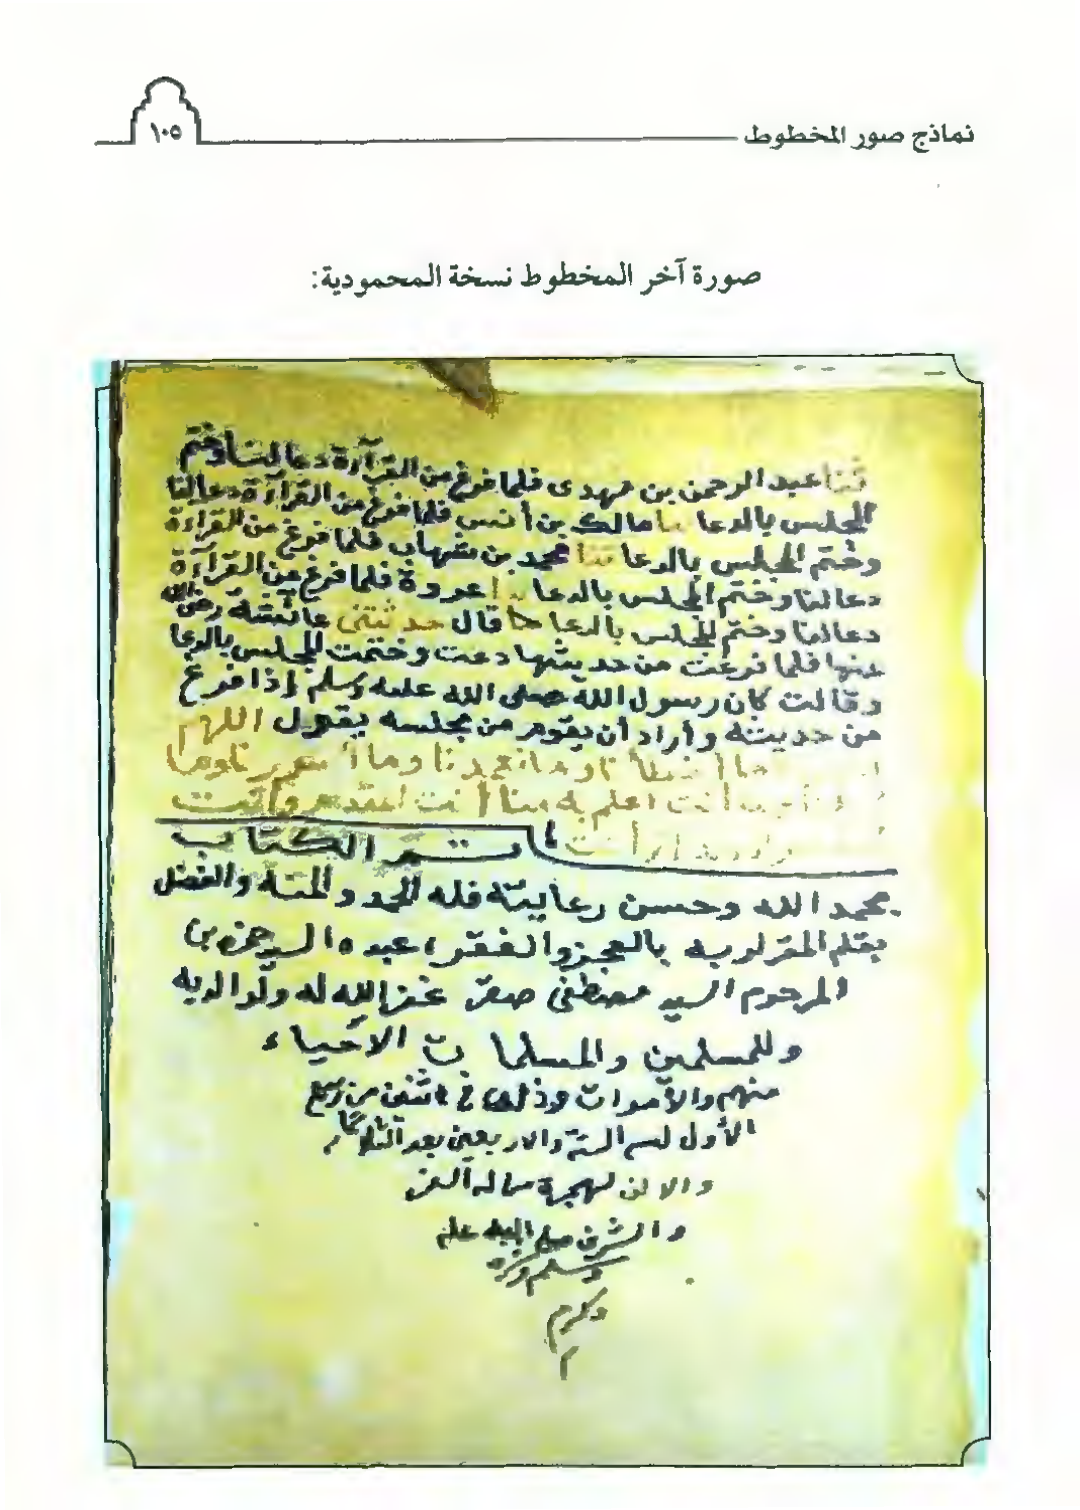 نماذج صور المخطوط
١٠٥
صورة آخر المخطوط نسخة المحمودية:
ثنا عبد الرحمن بن مهدى فلما فرغ من القرآءة دعا لنا وختم
المجلس بالدعا نا مالك بن أنس فلما فرغ من القرآءة دعا لنا
وختم المجلس بالدعا ثنا محمد بن شهاب فلما فرغ من القراءة
دعا لنا وختم المجلس بالدعا نا عروة فلما فرغ من القرآءة
دعا لنا وختم المجلس بالدعا قال حدثتني عائشة رضى الله
عنها فلما فرغت من حديثها دعت وختمت المجلس بالدعا
وقالت كان رسول الله صلى الله عليه وسلم إذا فرغ
من حديثه وأراد أن يقوم من مجلسه يقول اللهم
ما أخطأنا وما تعمدنا وما أسررنا وما
أنت أعلم به منا أنت المقدم وأنت
أنت
تم الكتاب
بحمد الله وحسن رعايته فله الحمد والمنة والفضل
بقلم المقر لربه بالعجز والفقر عبده السيد حمزه بن
المرحوم السيد مصطفى صقر غفر الله له ولوالديه
وللمسلمين والمسلمات الاحياء
منهم والأموات وذلك في من ربيع
الأول الستة والاربعين بعد الثلاثمائة
والالف لهجرة من له العز
والشرف صلى الله عليه
وسلم
وكرم
م